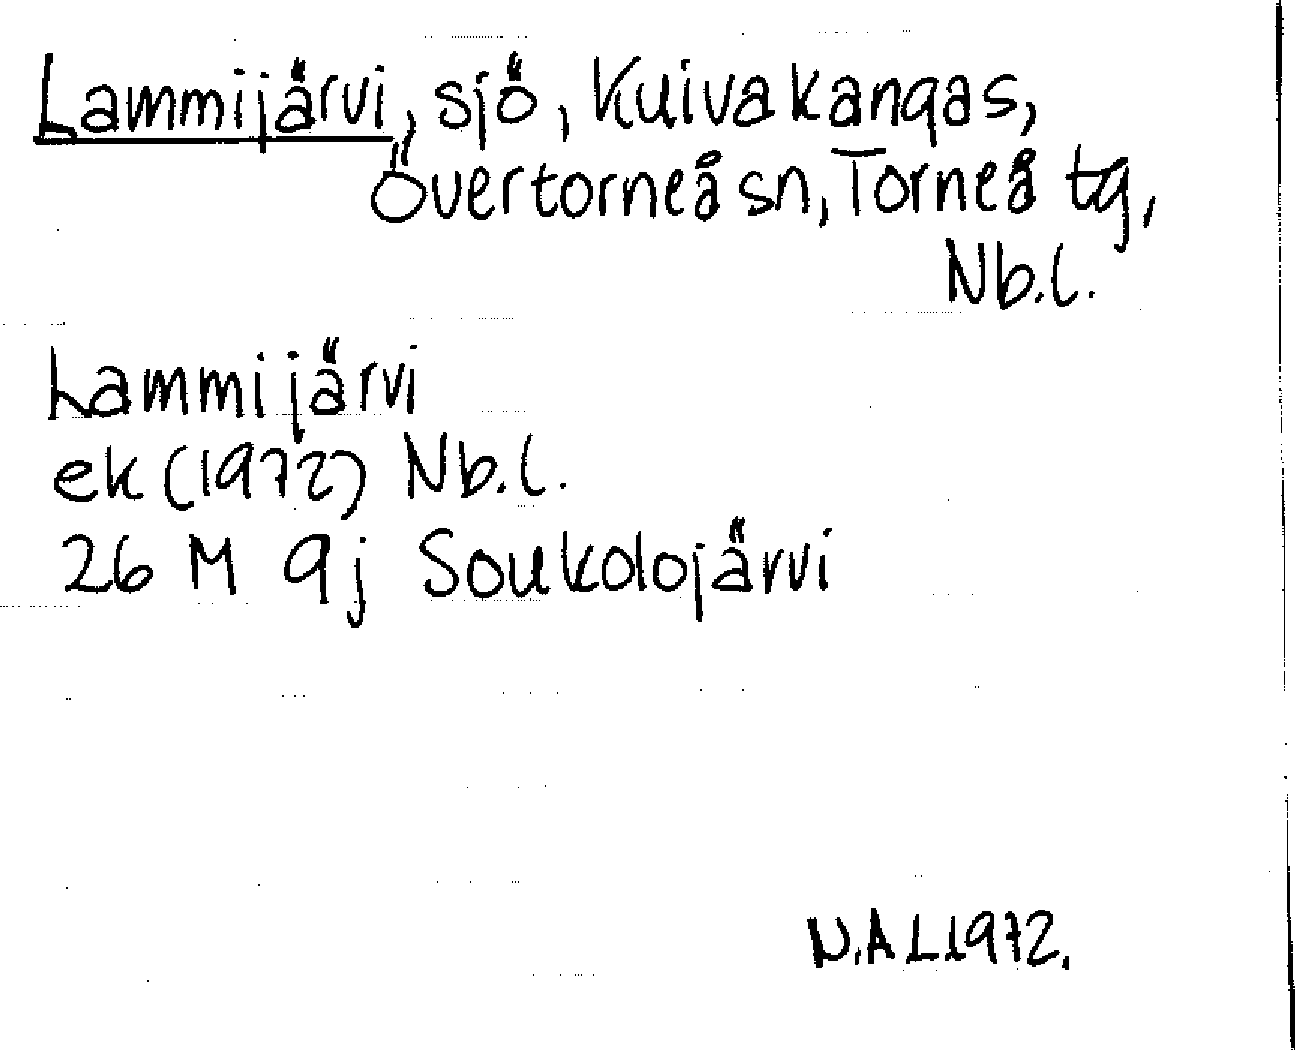 Lammijärvi, sjö, Kuivakangas,
Övertorneå sn, Torneå tg,
Nb.l.
Lammijärvi
ek (1972) Nb.l.
26 M 9j Soukolojärvi
N.A L 1972.